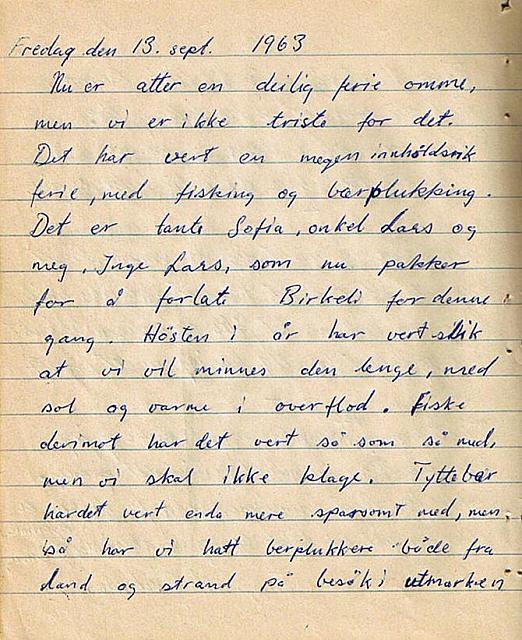 Fredag den 13. sept. 1963
Nu er atter en deilig ferie omme,
men vi er ikke triste for det.
Det har vert en megen innholdsrik
ferie, med fisking og bærplukking.
Det er tante Sofia, onkel Lars og
meg, Inge Lars, som nu pakker
for å forlate Birkeli for denne
gang. Hösten i år har vert slik
at vi vil minnes den lenge, med
sol og varme i overflod. Fiske
derimot har det vert så som så med,
men vi skal ikke klage. Tyttebær
hardet vert enda mere sparsomt med, men
så har vi hatt berplukkere både fra
land og strand på besök i utmarken